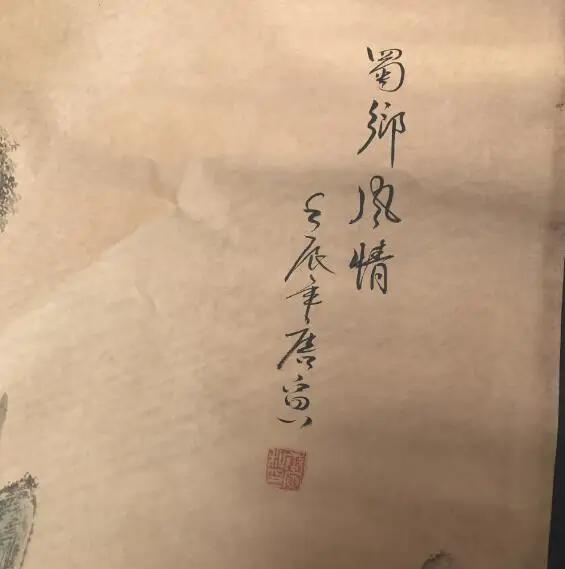 蜀鄉風情
壬辰年唐寅